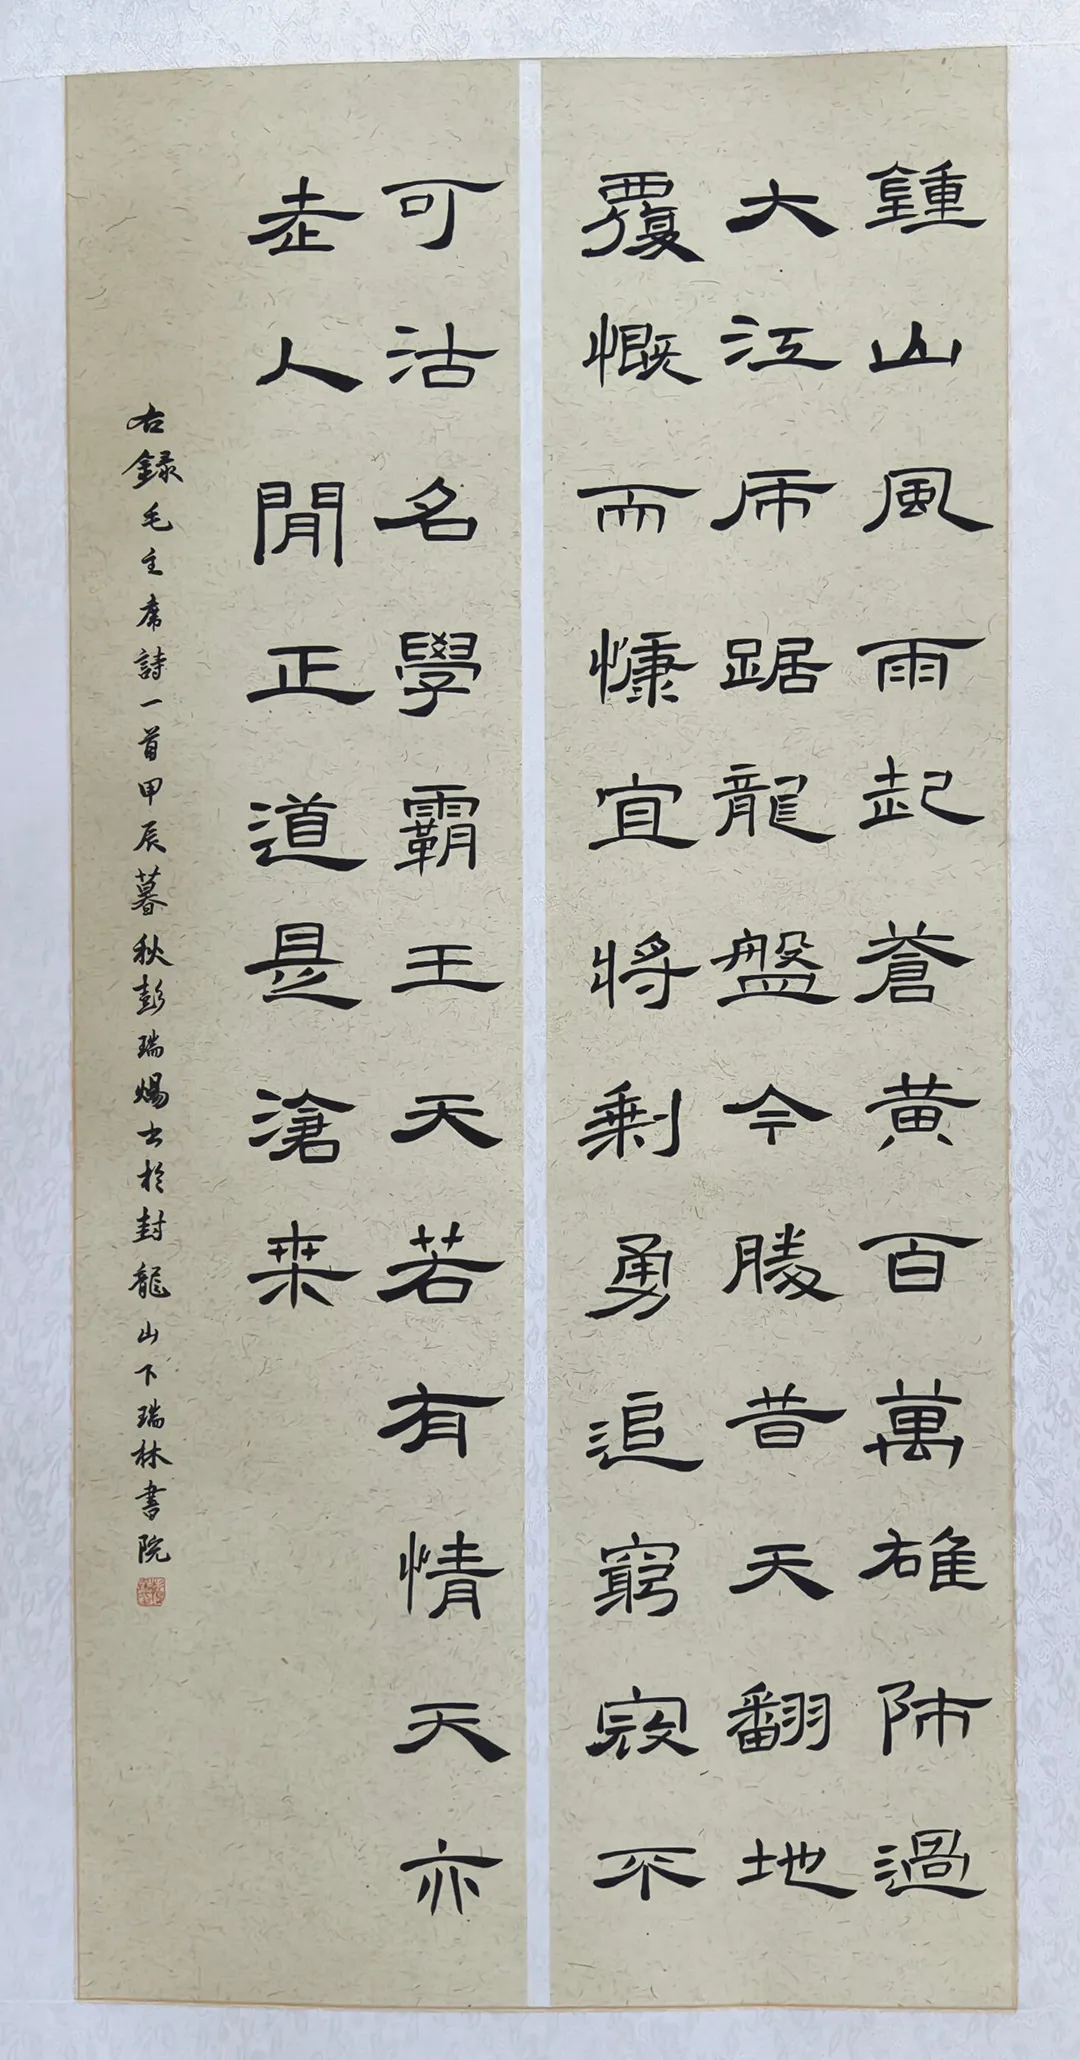 鍾山風雨起蒼黃百萬雄師過
大江虎踞龍盤今勝昔天翻地
覆慨而慷宜將剩勇追窮寇不
可沽名學霸王天若有情天亦
老人閒正道是滄桒
右錄毛主席詩一首甲辰暮秋彭瑞煬书於封龍山下瑞林書院